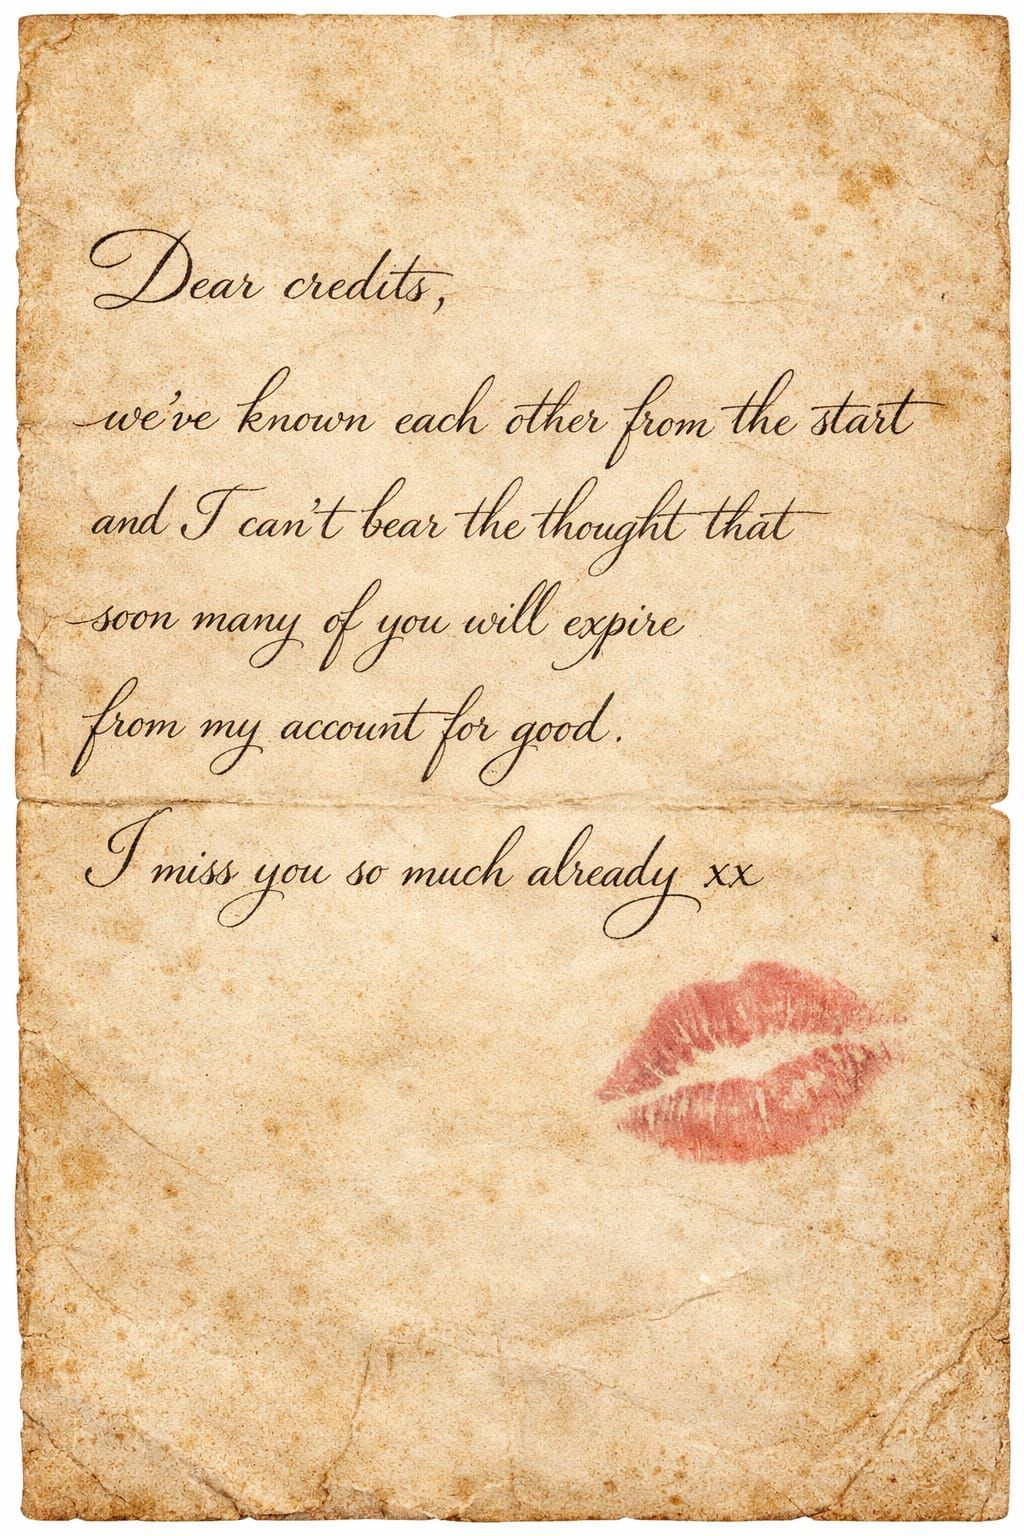 Dear credits,
we've known each other from the start
and I can't bear the thought that
soon many of you will expire
from my account for good.
I miss you so much already xx